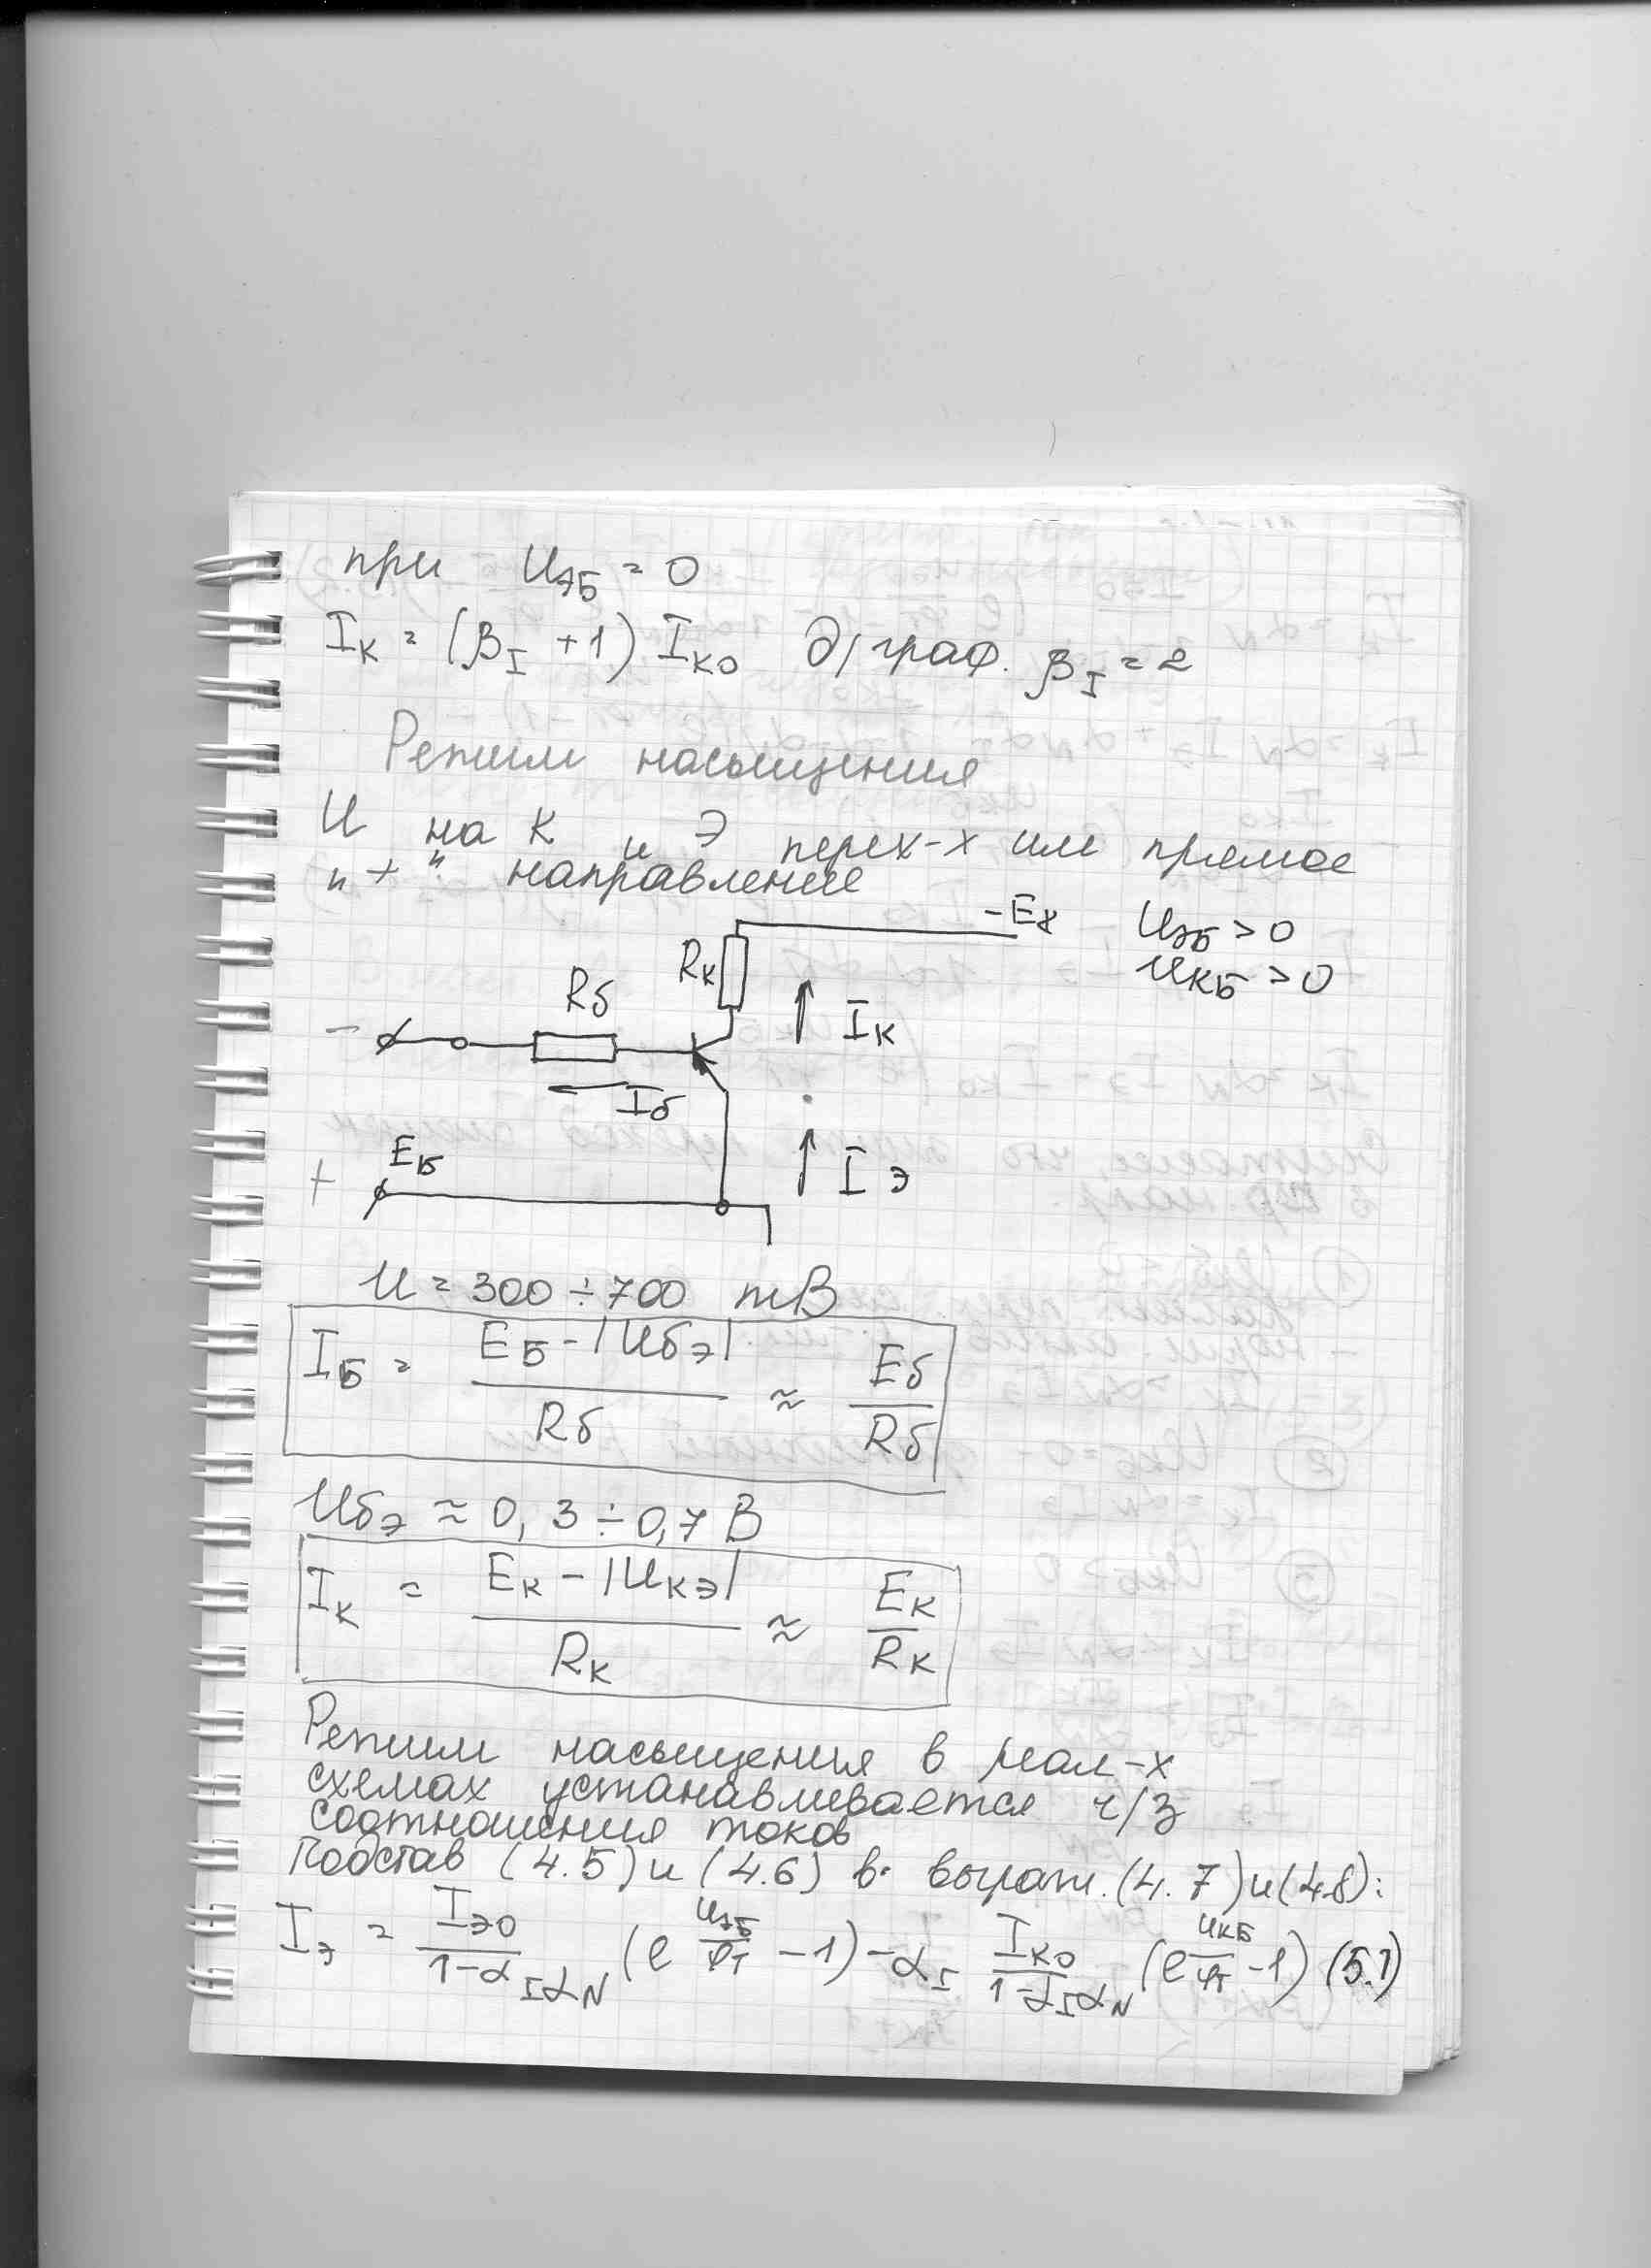 при U_ЭБ = 0
I_К = (β_I + 1) I_К0 д/граф. β_I = 2
Режим насыщения
U на К и Э перех-х или прямое
"+" направление
-Eк U_ЭБ > 0
U_КБ > 0
Rк
Rб
I_К
-
Iб
E_Б
+
I_Э
U = 300 ÷ 700 mВ
I_Б = (E_Б - |Uбэ|) / Rб ≈ Eб / Rб
Uбэ ≈ 0,3 ÷ 0,7 В
I_К = (E_К - |U_КЭ|) / R_К ≈ E_К / R_К
Режим насыщения в реал-х
схемах устанавливается ч/з
соотношения токов
Подстав (4.5) и (4.6) в выраж. (4.7) и (4.8):
I_Э = I_Э0 / (1-α_I α_N) (e^(U_ЭБ/φ_T) - 1) - α_I I_К0 / (1-α_I α_N) (e^(U_КБ/φ_T) - 1) (5.1)